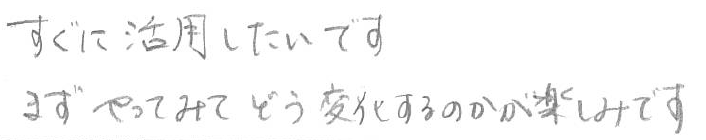 すぐに活用したいです
まずやってみてどう変化するのかが楽しみです